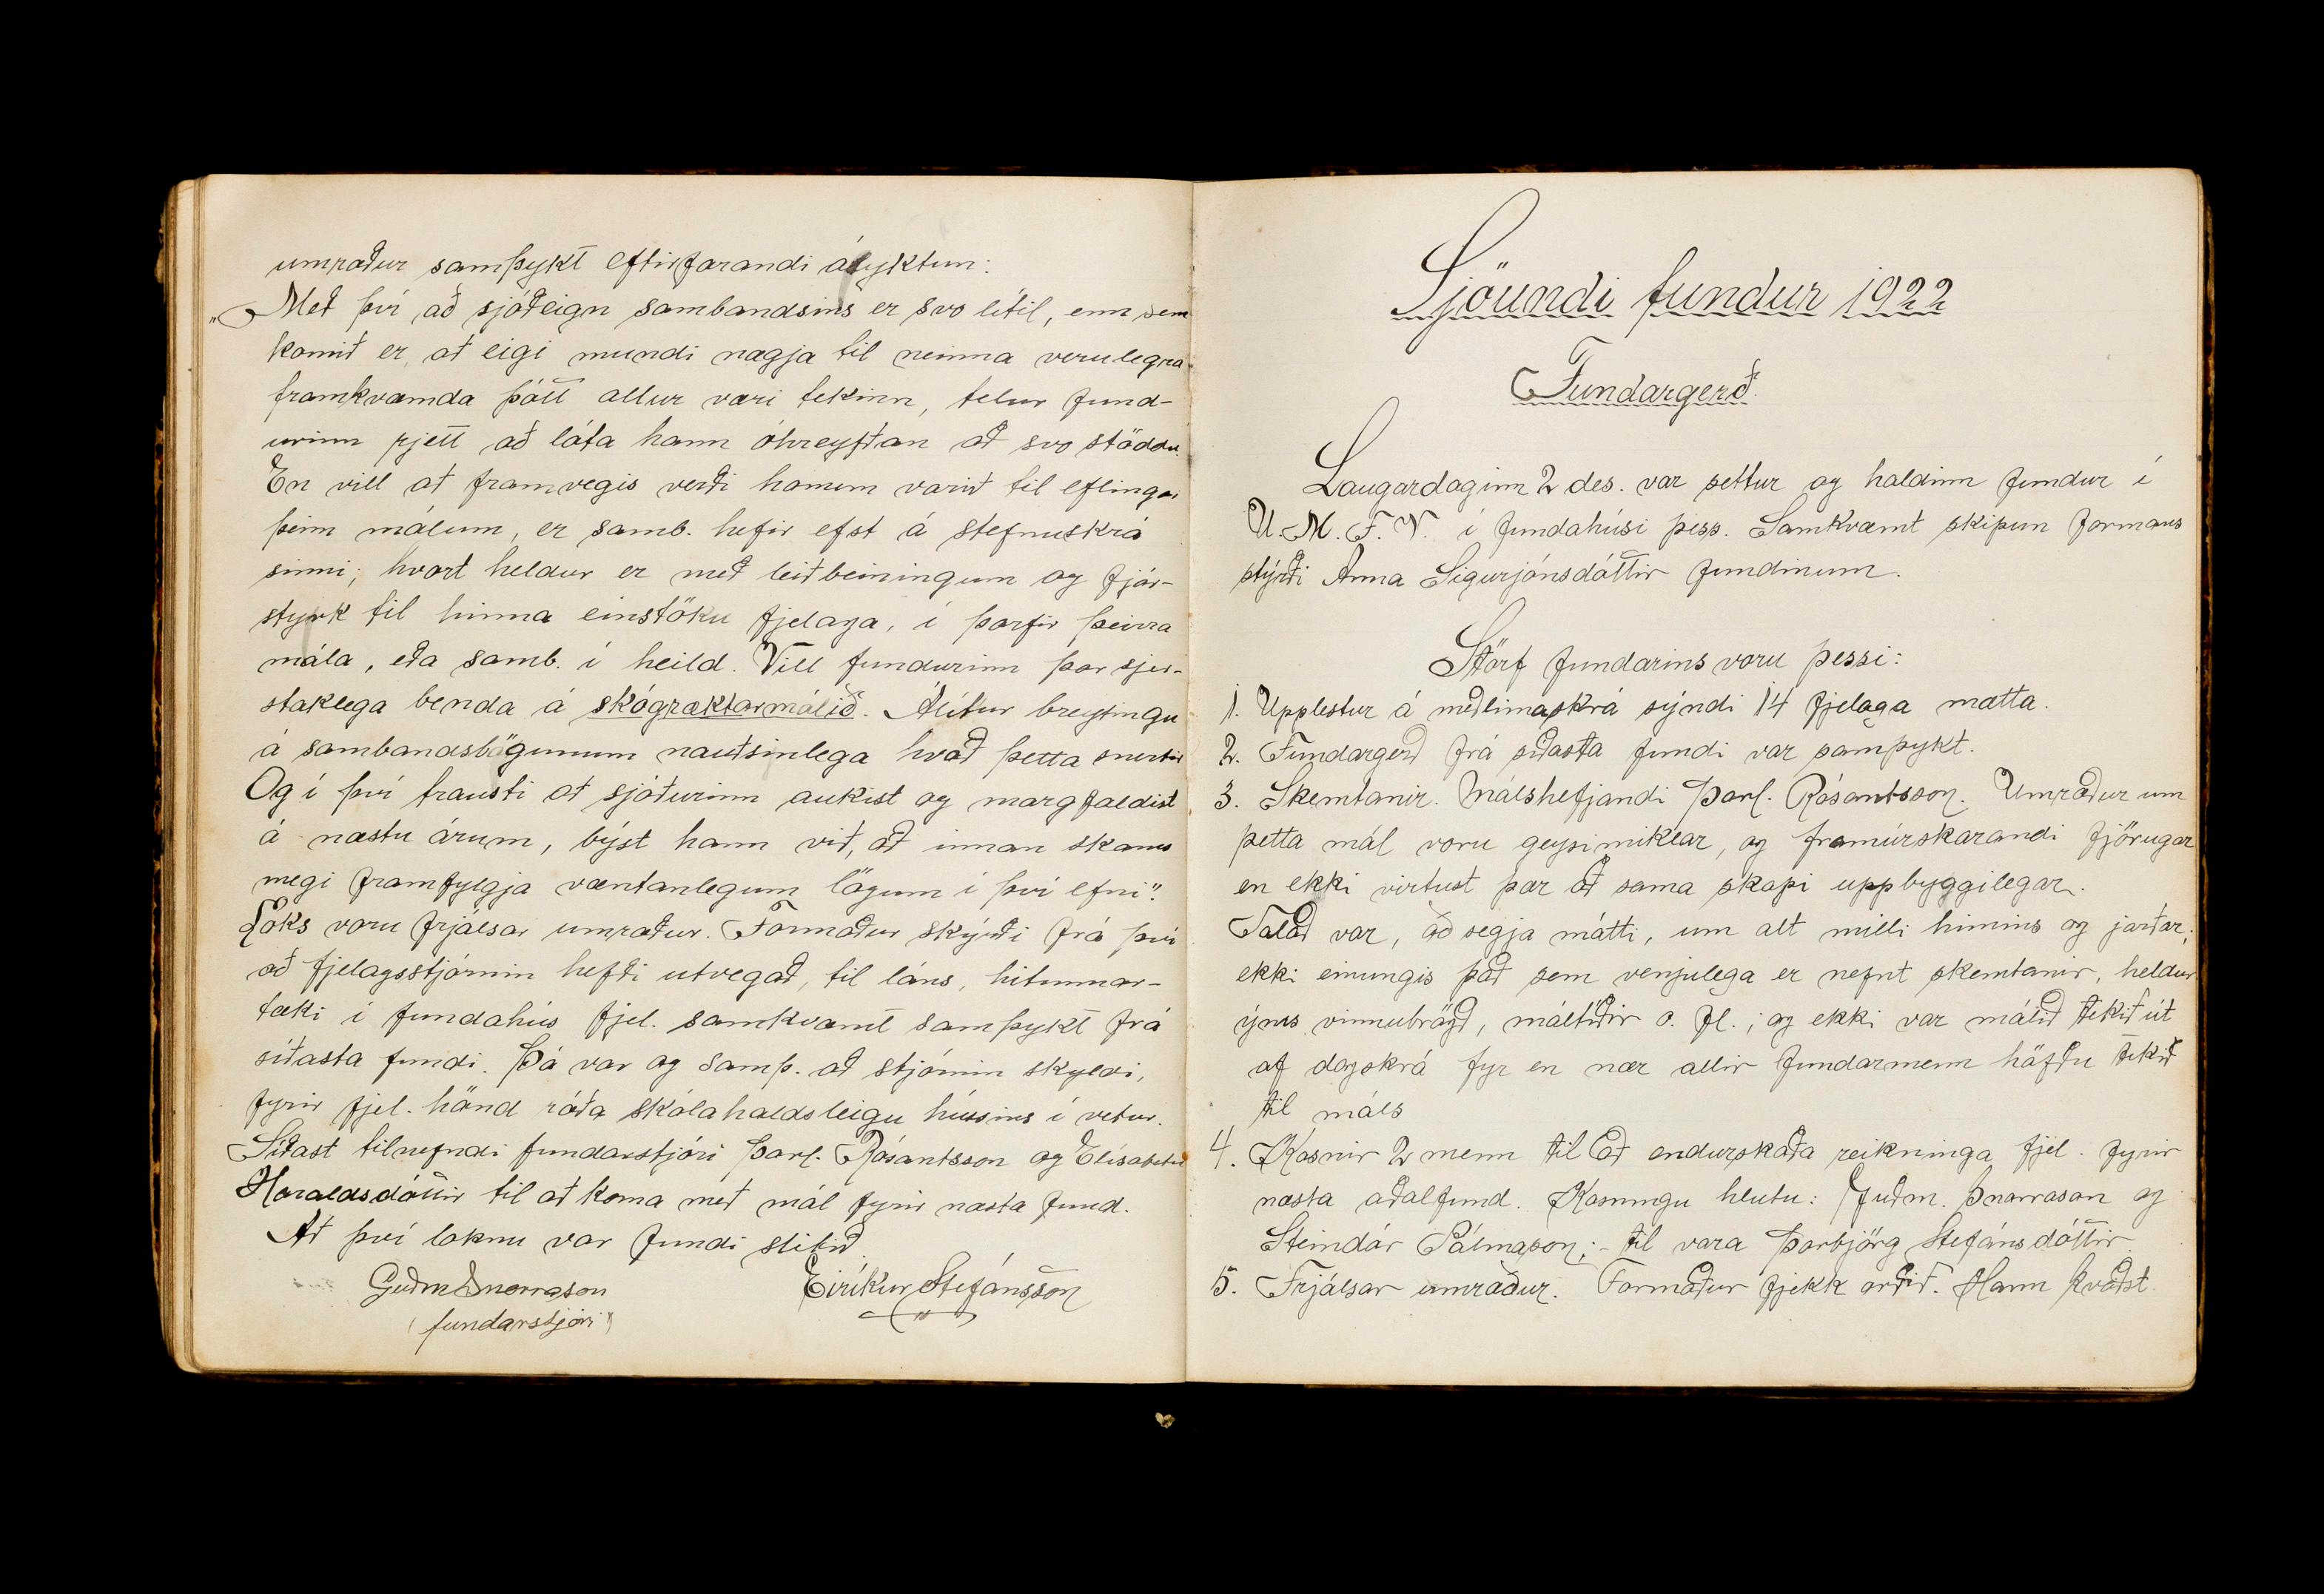 umræður samþykt eftirfarandi ályktun:
„Með því að sjóðeign sambandsins er svo lítil, enn sem
komið er, að eigi mundi nægja til neinna verulegra
framkvæmda þótt allur væri tekinn, telur fund-
urinn rjett að láta hann óhreyfðan að svo stöddu.
En vill að framvegis verði honum varið til eflingar
þeim málum, er samb. hefir efst á stefnuskrá
sinni, hvort heldur er með leiðbeiningum og fjár-
styrk til hinna einstöku fjelaga, í þarfir þeirra
mála, eða samb. í heild. Vill fundurinn þar sjer-
staklega benda á skógræktarmálið. Álítur breytingu
á sambandslögunum nauðsinlega hvað þetta snertir
Og í því trausti að sjóðurinn aukist og margfaldist
á næstu árum, býst hann við, að innan skams
megi framfylgja væntanlegum lögum í því efni".
Loks voru frjálsar umræður. Formaður skýrði frá því
að fjelagsstjórnin hefði utvegað, til láns, hitunnar-
tæki í fundahús fjel. samkvæmt samþykt frá
síðasta fundi. Þá var og samþ. að stjórnin skyldi,
fyrir fjel. hönd ráða skólahaldsleigu hússins í vetur.
Síðast tilnefndi fundarstjóri Þorl. Rósantsson og Elísabetu
Haraldsdóttir til að koma með mál fyrir næsta fund.
Að því loknu var fundi slitið.
Guðm Snorrason
(fundarstjóri)
Eiríkur Stefánsson
Sjöundi fundur 1922
Fundargerð.
Laugardaginn 2 des. var settur og haldinn fundur í
U.M.F.V. í fundahúsi þess. Samkvæmt skipun formans
stýrði Anna Sigurjónsdóttir fundinum.
Störf fundarins voru þessi:
1. Upplestur á meðlimaskrá sýndi 14 fjelaga mætta.
2. Fundargerð frá síðasta fundi var samþykt.
3. Skemtanir. Málshefjandi Þorl. Rósantsson. Umræður um
þetta mál voru geysimiklar, og framúrskarandi fjörugar
en ekki virtust þær að sama skapi uppbyggilegar.
Talað var, að segja mátti, um alt milli himins og jarðar;
ekki einungis það sem venjulega er nefnt skemtanir, heldur
ýms vinnubrögð, máltíðir o. fl.; og ekki var málið tekið út
af dagskrá fyr en nær allir fundarmenn höfðu tekið
til máls
4. Kosnir 2 menn til að endurskoða reikninga fjel. fyrir
næsta aðalfund. Kosningu hlutu: Guðm. Snorrason og
Steindór Pálmason; - til vara Þorbjörg Stefánsdóttir.
5. Frjálsar umræður. Formaður fjekk orðið. Hann kvaðst